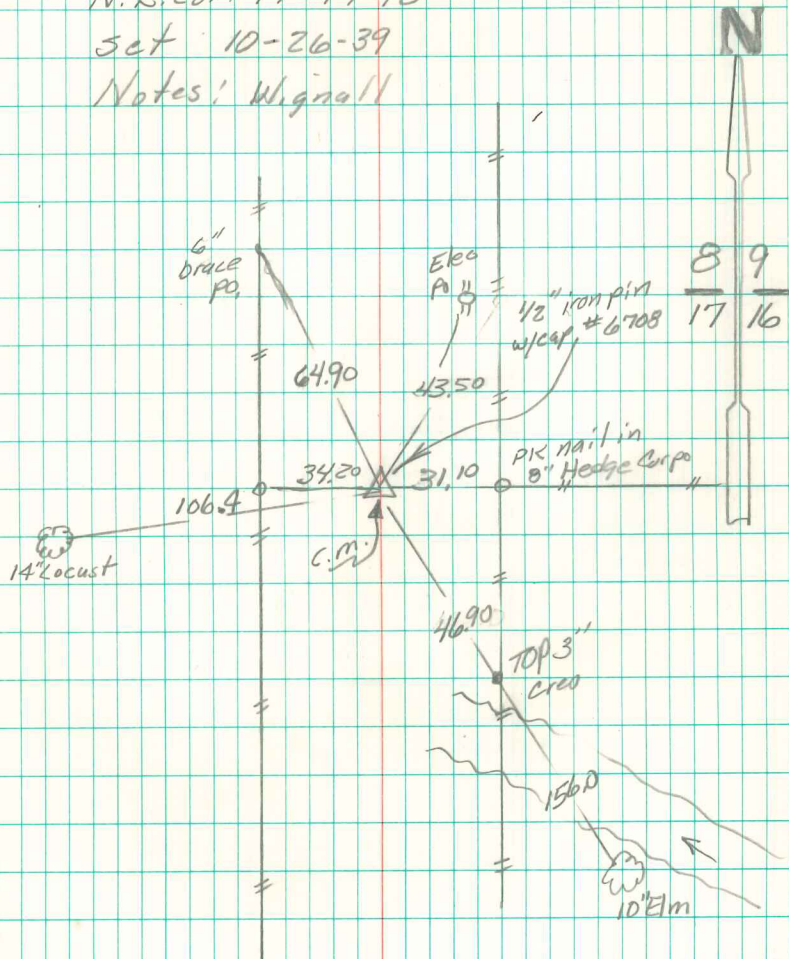 set 10-26-39
Notes: Wignall
N
6"
brace
po.
Elec
po
1/2" iron pin
w/cap #6708
8 9
17 16
64.90
43.50
34.20
31.10
PK nail in
8" Hedge Cor po
106.4
14" Locust
c.m.
46.90
TOP 3"
creo
156.0
10" Elm